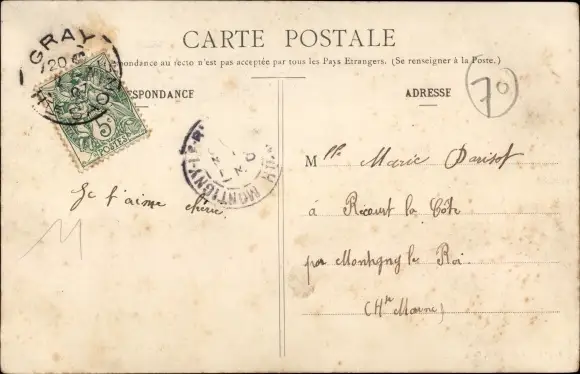 CARTE POSTALE
ondance au recto n'est pas acceptée par tous les Pays Etrangers. (Se renseigner à la Poste.)
ESPONDANCE
ADRESSE
GRAY
20
5c
POSTES
MONTIGNY-LE-R
70
Je t'aime chérie
M
Mlle Marie Parisot
à Récourt la Côte
par Montigny le Roi
(Hte Marne)